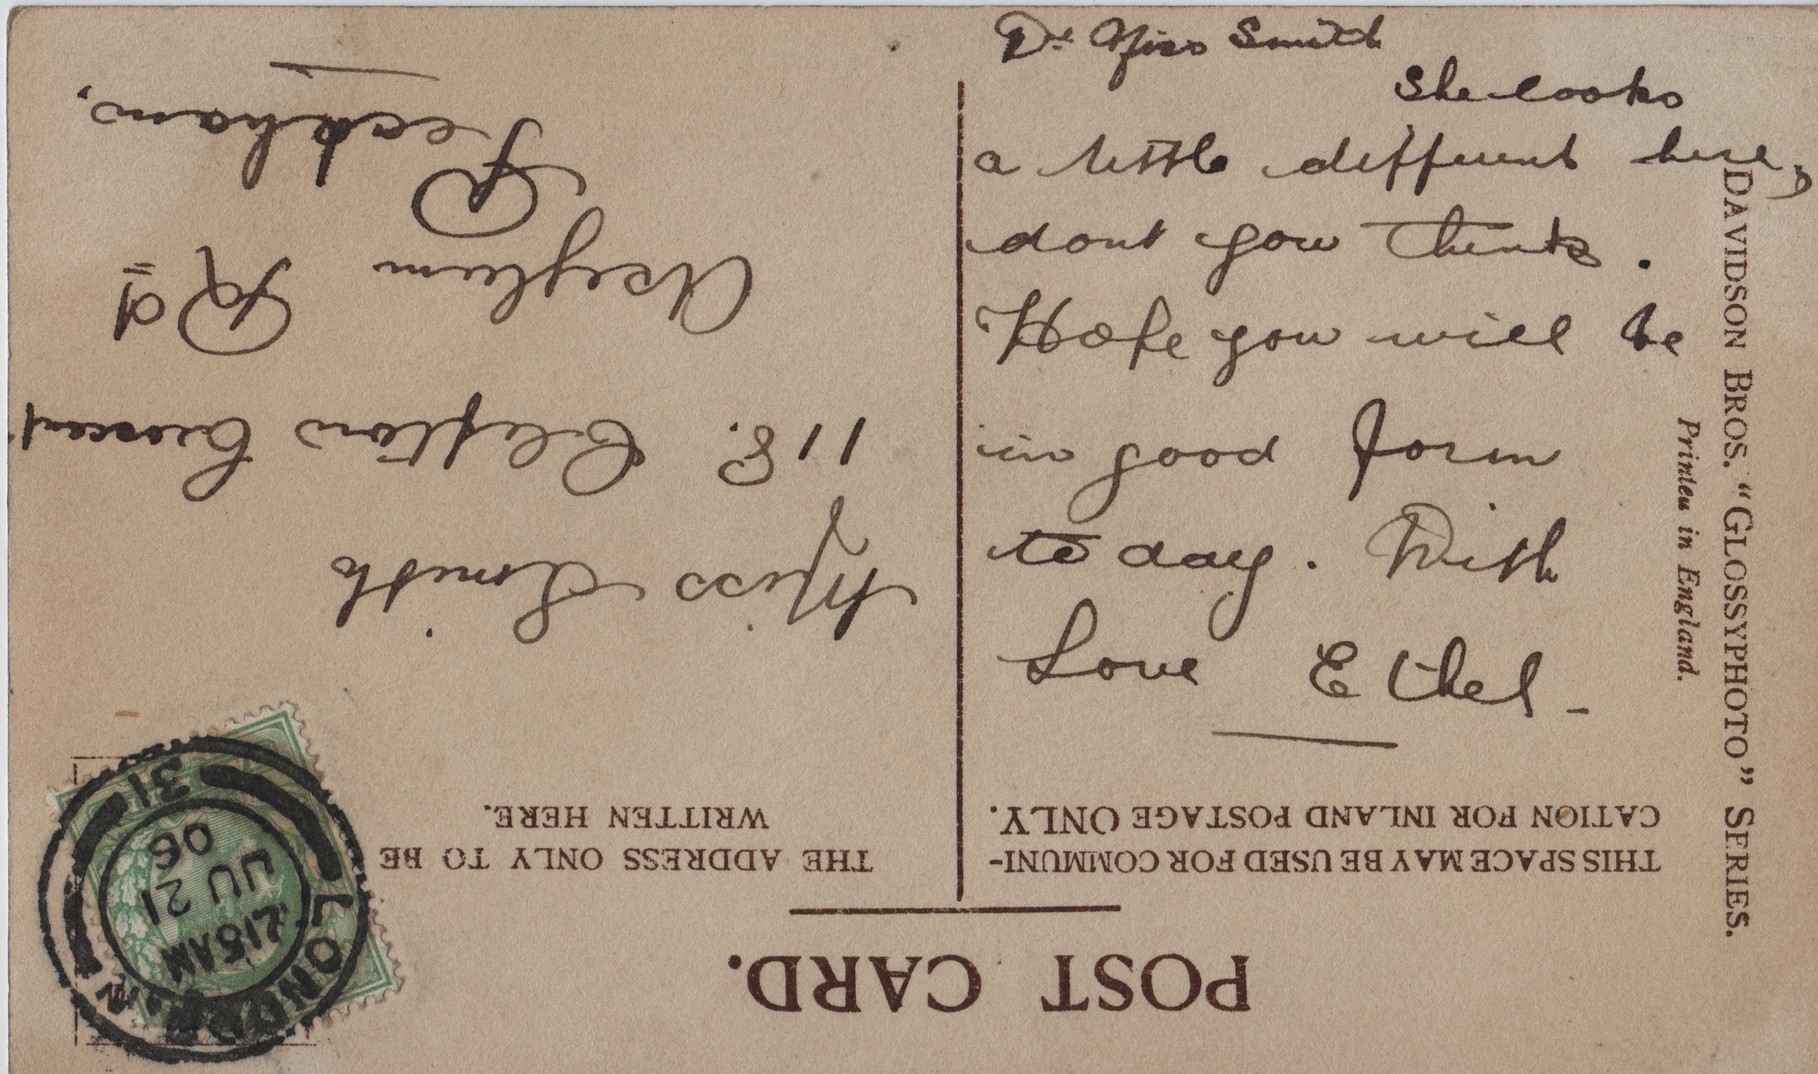 POST CARD.
THIS SPACE MAY BE USED FOR COMMUNI-
CATION FOR INLAND POSTAGE ONLY.
THE ADDRESS ONLY TO BE
WRITTEN HERE.
Dr Miss Smith
She looks
a little different here,
dont you think.
Hope you will be
in good form
to day. With
Love Ethel -
Miss Smith
118. Clifton Crescent
Asylum Rd
Peckham,
DAVIDSON BROS. "GLOSSYPHOTO" SERIES.
Printed in England.
LONDON
2.15AM
JU 21
06
31